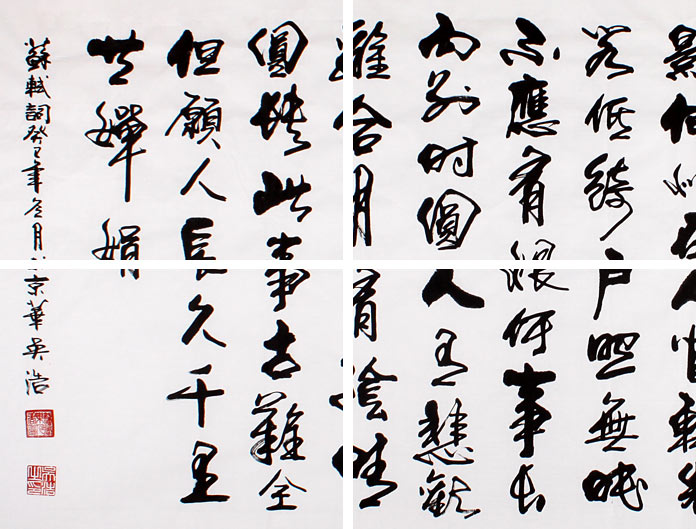 影何似在人間轉朱
閣低綺戶照無眠
不應有恨何事长
向別时圓人有悲歡
離合月有陰晴
圓缺此事古難全
但願人長久千里
共嬋娟
蘇軾詞癸巳年冬月於京華吳浩